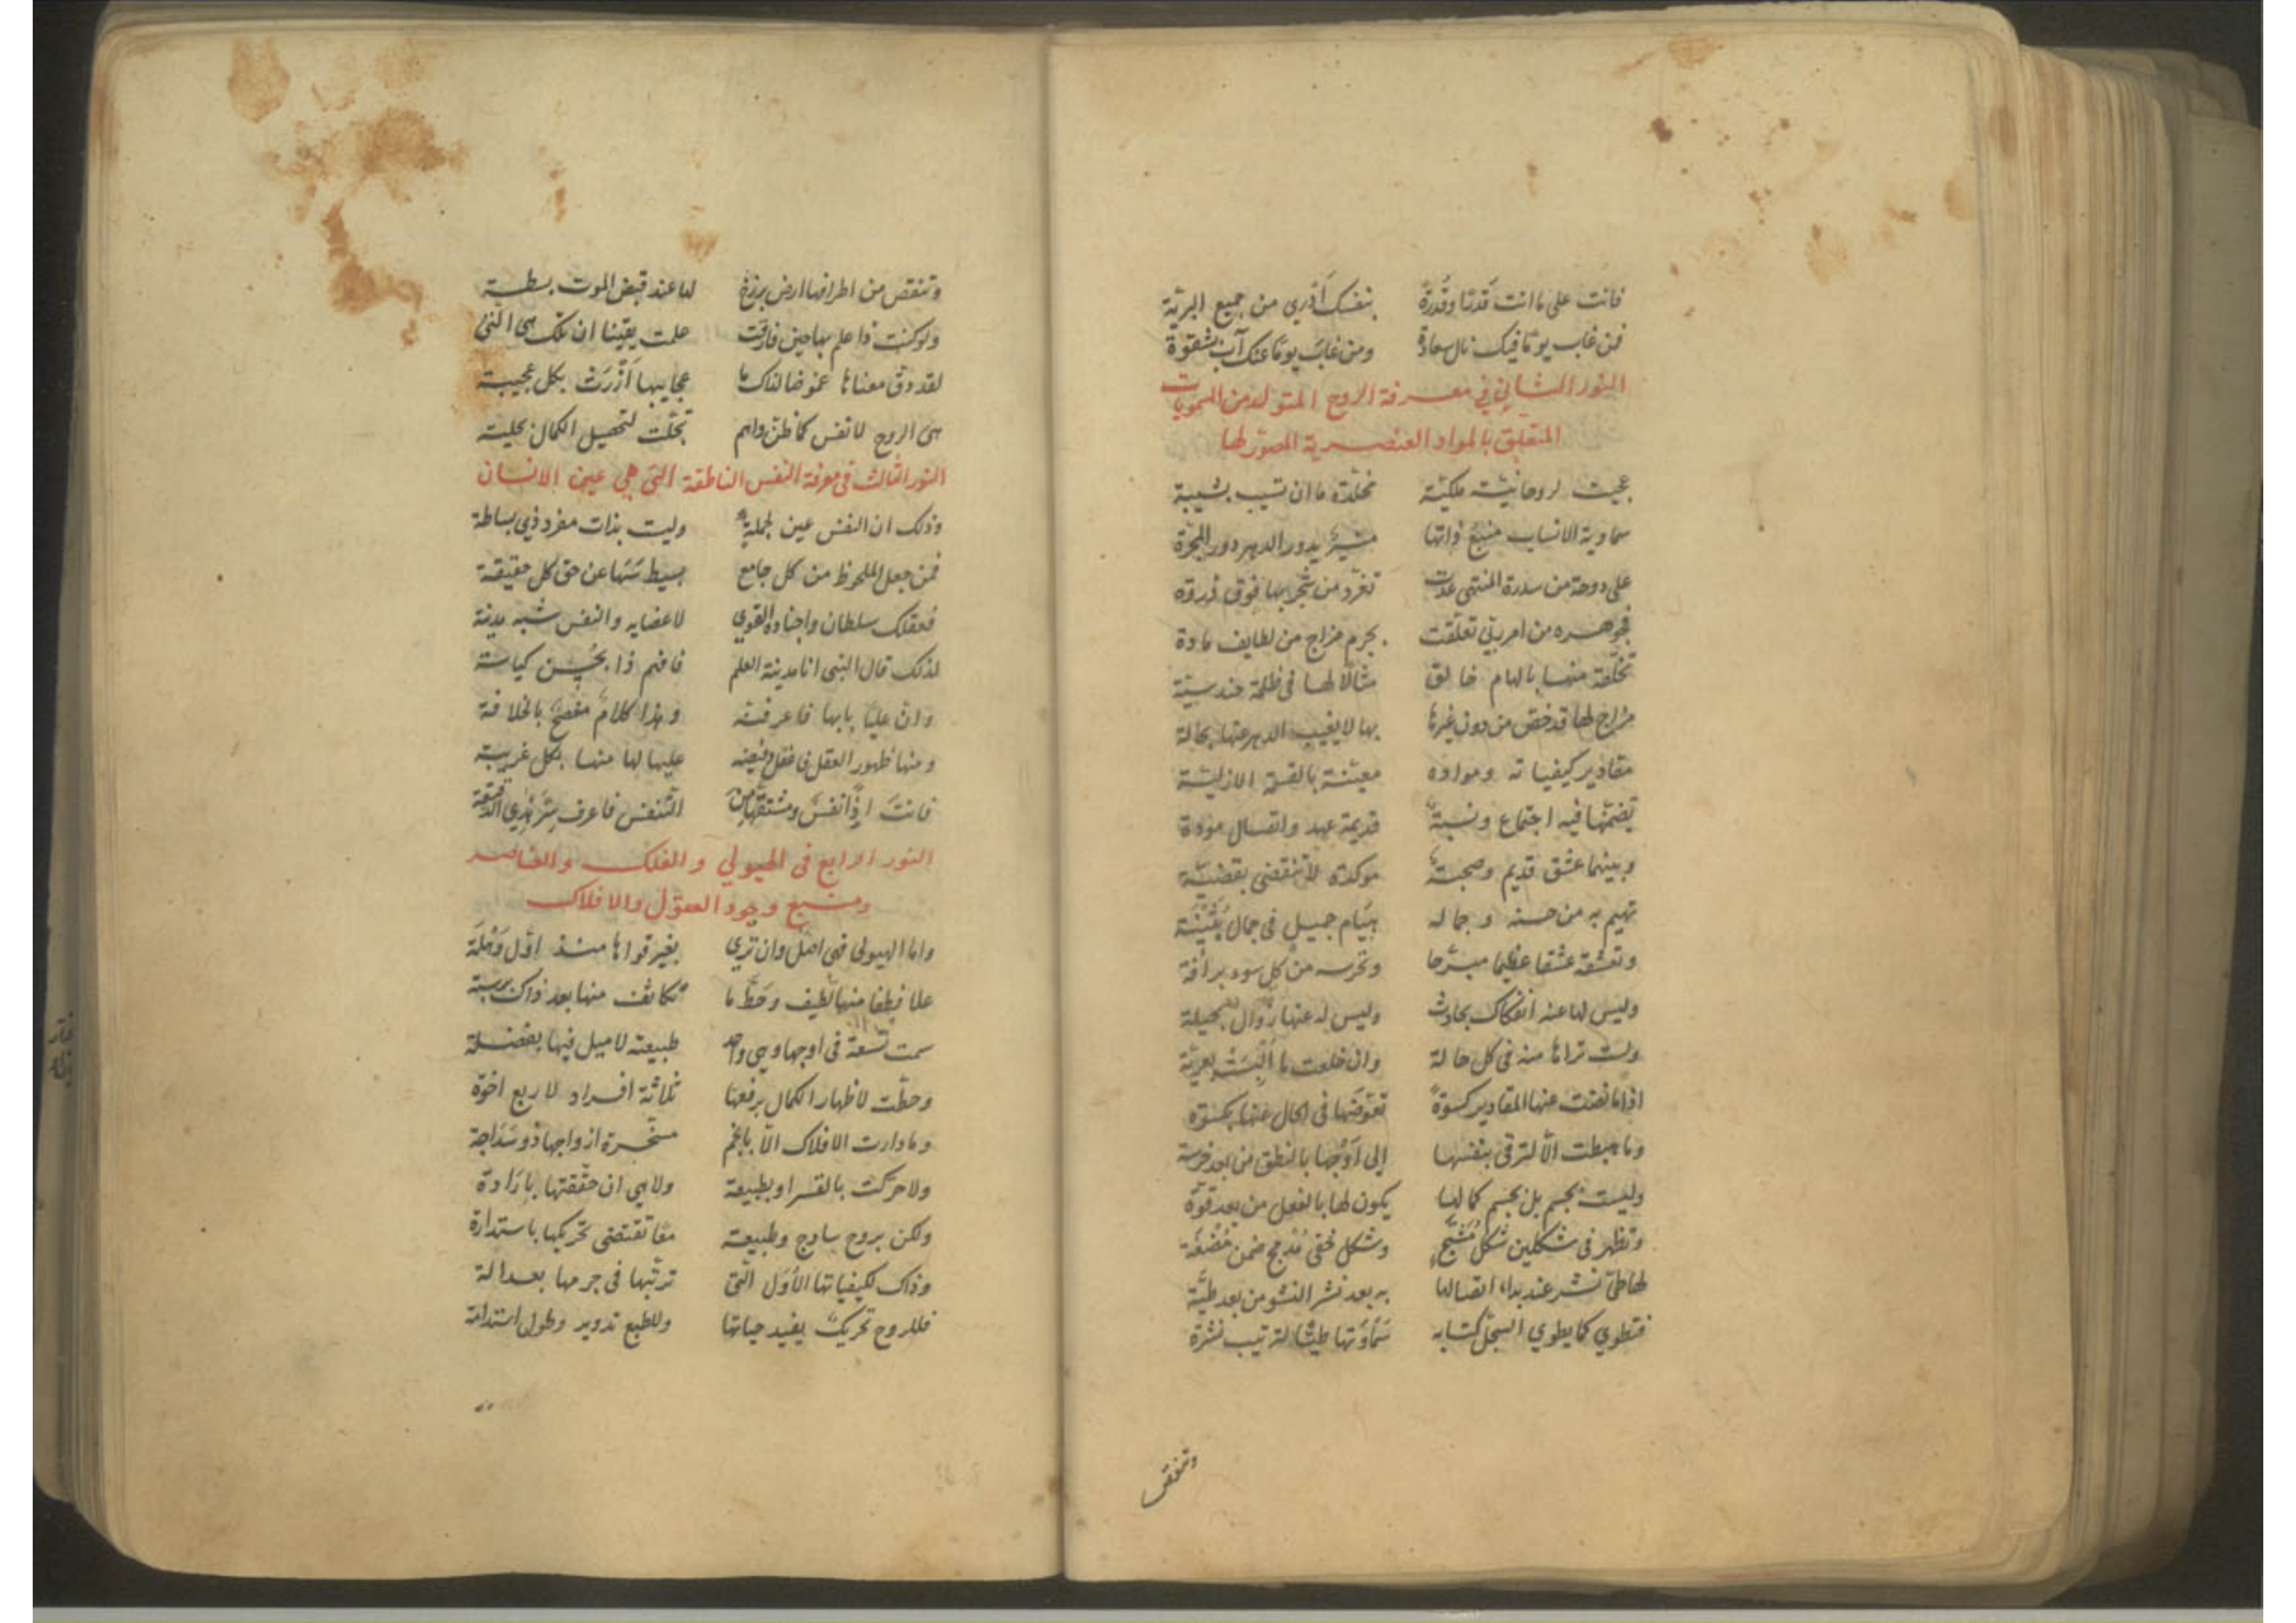 فانت على ما انت قدرًا وقُدرة بنفسك أدري من جميع البرية
فمن غاب يومًا فيك نال سعادة ومن غاب يومًا عنك آب بشقوة
النور الثاني في معرفة الروح المتولد من السمويات
المتعلق بالمواد العنصرية المصوّر لها
عجبت لروحانيّة ملكيّة مخلّدة ما ان تشيب بشيبة
سماوية الانساب منبع ذاتها يدور الدهر دور المجرّة
على دوحة من سدرة المنتهى غدت تغرّد من شجر بها فوق ذروة
فجوهره من امر ربّي تعلّقت بجرم مزاج من لطايف مادة
تخلّقه منها بالهام خالق مثالًا لها في ظلمة حندسيّة
مزاج لها قد خصّ من دون غيرها بها لا يغيب الدهر عنها بحالة
مقادير كيفياته ومواده معيّنة بالقسمة الازليّة
تضمّها فيه اجتماع ونسبةٌ قديمة عهد واتصال مودة
وبينهما عشق قديم وصحبةٌ موكدة لا تنقضي بقضيّة
تهيم به من حسنه وجماله هيام جميل في جمال بُثَيْنَة
وتعشقه عشقا عظيما مبرّحا وتحرسه من كل سوء برأفة
وليس لها عنه انفكاك بحادث وليس له عنها زوال بحيلة
ولست تراها منه في كل حالة وان خلعت ما أُلبِسَتْ بعريّة
اذا ما نضت عنها المقادير كسوةً تعوّضها في الحال عنها بكسوة
وما هبطت الّا لترقى بنفسها إلى أوْجها بالنطق من بعد خرسة
وليست بجسم بل بجسم كمالها يكون لها بالفعل من بعد قوّة
وتظهر في شكلين شكل مُشبَّحٍ وشكل خفي مُدمج ضمن مُضْغَة
لها طيّ نشر عند بداء اتصالها به بعد نشر النشو من بعد طيّة
فتطوي كما يطوي السجلّ كتابه سَمَاوَتها طيًّا لترتيب نشرة
وتنقص
وتنقص من اطرافها ارض برزخ لها عند قبض الموت بسطة
ولو كنت ذا علم بها حين فارقت علمت يقينا ان تلك هي الّتي
لقد دقّ معناها غموضا لذاك ما عجايبها أزرَتْ بكل عجيبة
هي الروح لا نفس كما ظنّ واهم تجلّت لتحصيل الكمال بحلية
النور الثالث في معرفة النفس الناطقة التي هي عين الانسان
وذلك ان النفس عين لجملةٍ وليست بذات مفرد ذي بساطة
فمن جعل الملحوظ من كل جامع بسيط سَهَا عن حق كل حقيقة
فعقلك سلطان واجناده القوي لاعضايه والنفس شبه مدينة
لذلك قال النبي انا مدينة العلم فافهم ذا بحُسن كياسة
وان عليًا بابها فاعرفنّه وهذا كلامٌ مفصحٌ بالخلافة
ومنها ظهور العقل فاعقل فيضه عليها لها منها بكل غريبة
فانت إذًا نفسٌ ومشتقّها من التّنفّس فاعرف سرّ هذي الدقيقة
النور الرابع في الهيولي والفلك والعناصر
ومنبع وجود العقول والافلاك
واما الهيولى فهي اصل وان تري بغير قواها منذ اوّل وهْلَة
علا فطفا منها لطيف وحَطَّ ما تكاثف منها بعد ذاك برسبة
سمت تسعة في اوجها وهي واحد طبيعته لا ميل فيها بفضلة
وحطّت لاظهار الكمال برفعها ثلاثة افراد لاربع اخوّة
وما دارت الافلاك الّا بانجم مسخّرة ازواجها ذو سَذَاجة
ولا حرّكت بالقسر او بطبيعة ولا هي ان حقّقتها بإرادة
ولكن بروح ساذج وطبيعة معًا تقتضي تحريكها باستدارة
وذاك لكيفياتها الأوَل الّتي ترتّبها في جرمها بعدالة
فللروح تحريكٌ يفيد حياتها وللطبع تدوير وطول استدامة